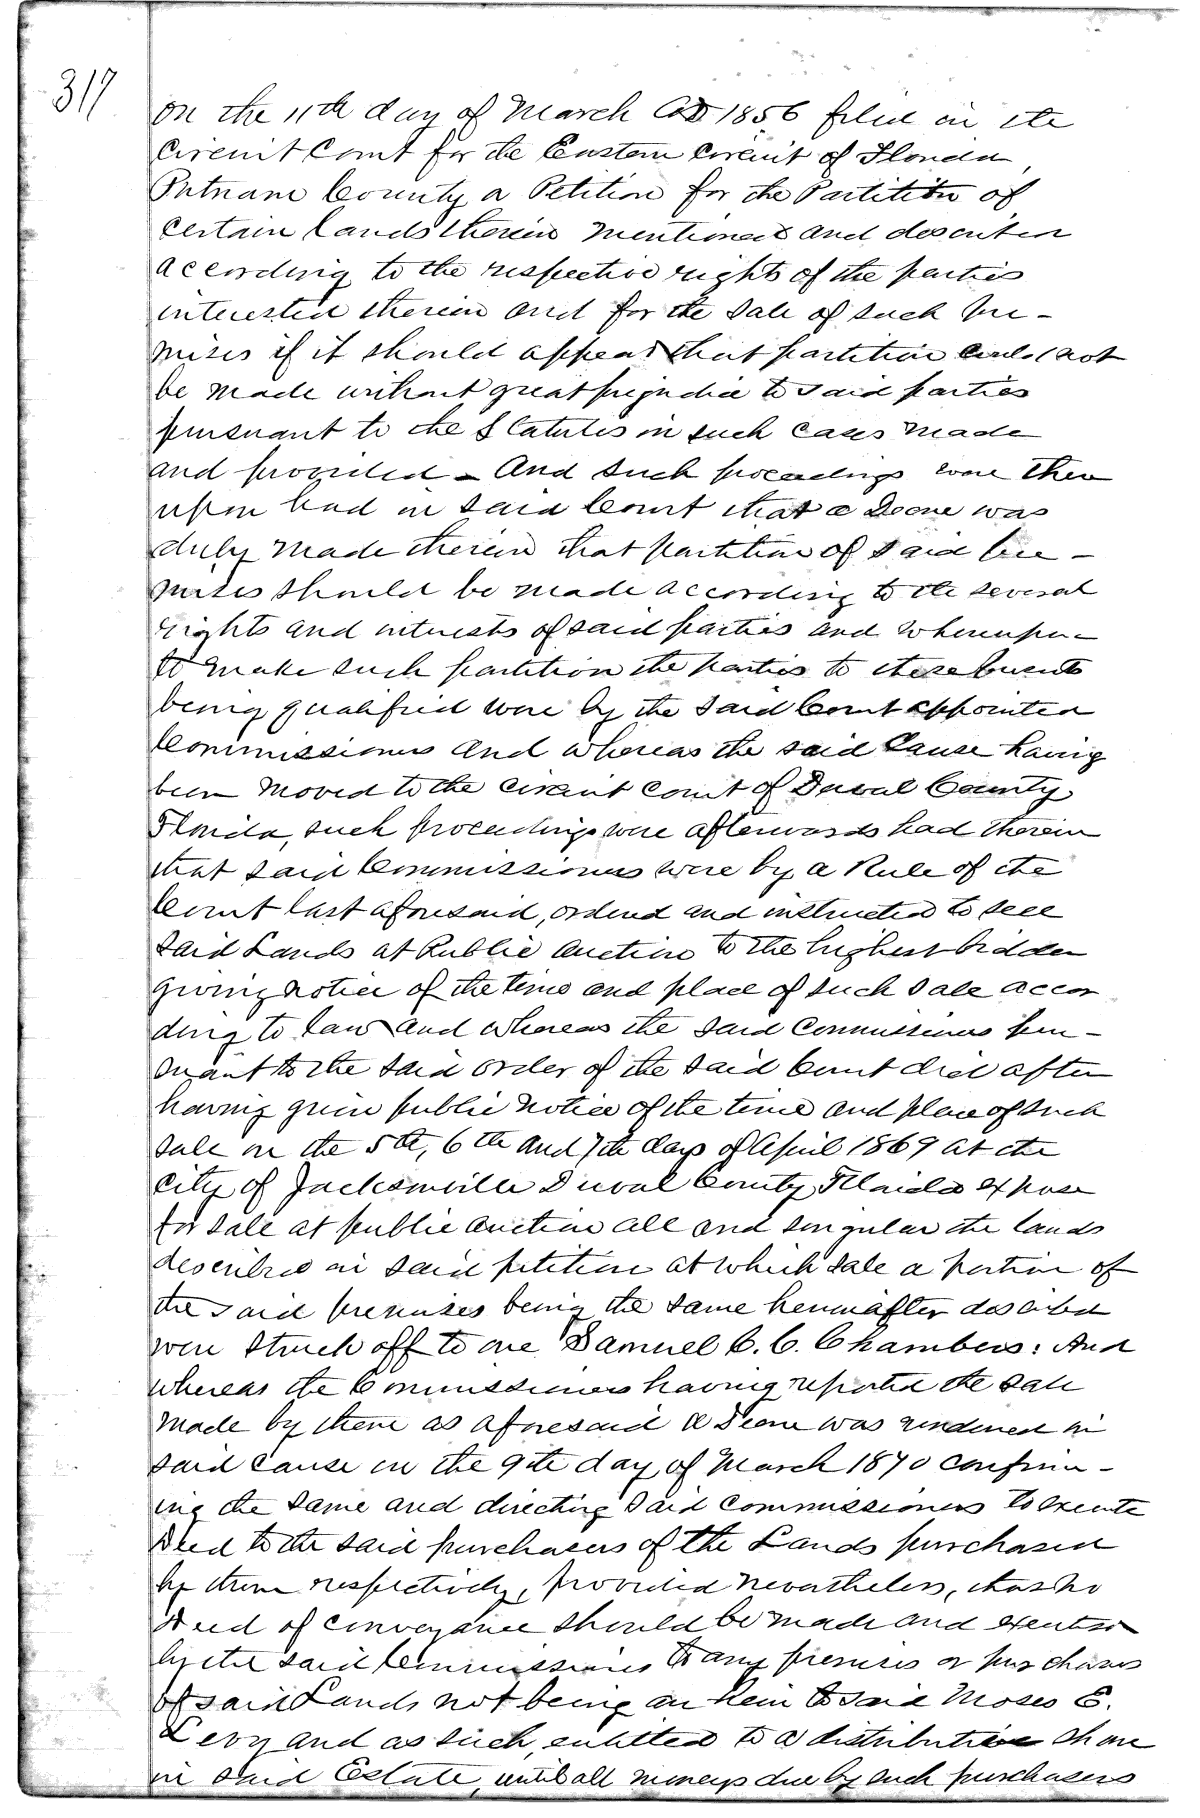 317
on the 11th day of March AD 1856 filed in the
Circuit Court for the Eastern Circuit of Florida,
Putnam County a Petition for the Partition of
certain lands therein mentioned and described
according to the respective rights of the parties
interested therein and for the sale of such pre-
mises if it should appear that partition could not
be made without great prejudice to said parties
pursuant to the Statutes in such cases made
and provided - And such proceedings were there
upon had in said Court that a Decree was
duly made therein that partition of said pre-
mises should be made according to the several
rights and interests of said parties and whereupon
to make such partition the parties to these presents
being qualified were by the said Court appointed
Commissioners and whereas the said Cause having
been moved to the Circuit Court of Duval County
Florida, such proceedings were afterwards had therein
that said Commissioners were by a Rule of the
Court last aforesaid, ordered and instructed to sell
said Lands at Public Auction to the highest bidder
giving notice of the time and place of such sale accor
ding to law and whereas the said Commissioners pur-
suant to the said order of the said Court did after
having given public notice of the time and place of such
sale on the 5th, 6th and 7th days of April 1869 at the
City of Jacksonville Duval County Florida expose
for sale at public auction all and singular the lands
described in said petition at which sale a portion of
the said premises being the same hereinafter described
were struck off to one Samuel C. C. Chambers: And
whereas the Commissioners having reported the sale
made by them as aforesaid a Decree was rendered in
said cause on the 9th day of March 1870 confirm-
ing the same and directing said Commissioners to execute
Deed to the said purchasers of the Lands purchased
by them respectively, provided nevertheless, that no
Deed of conveyance should be made and executed
by the said Commissioners to any premises or purchases
of said Lands not being an heir to said Moses E.
Levy and as such, entitled to a distributive share
in said Estate, until all moneys due by such purchasers